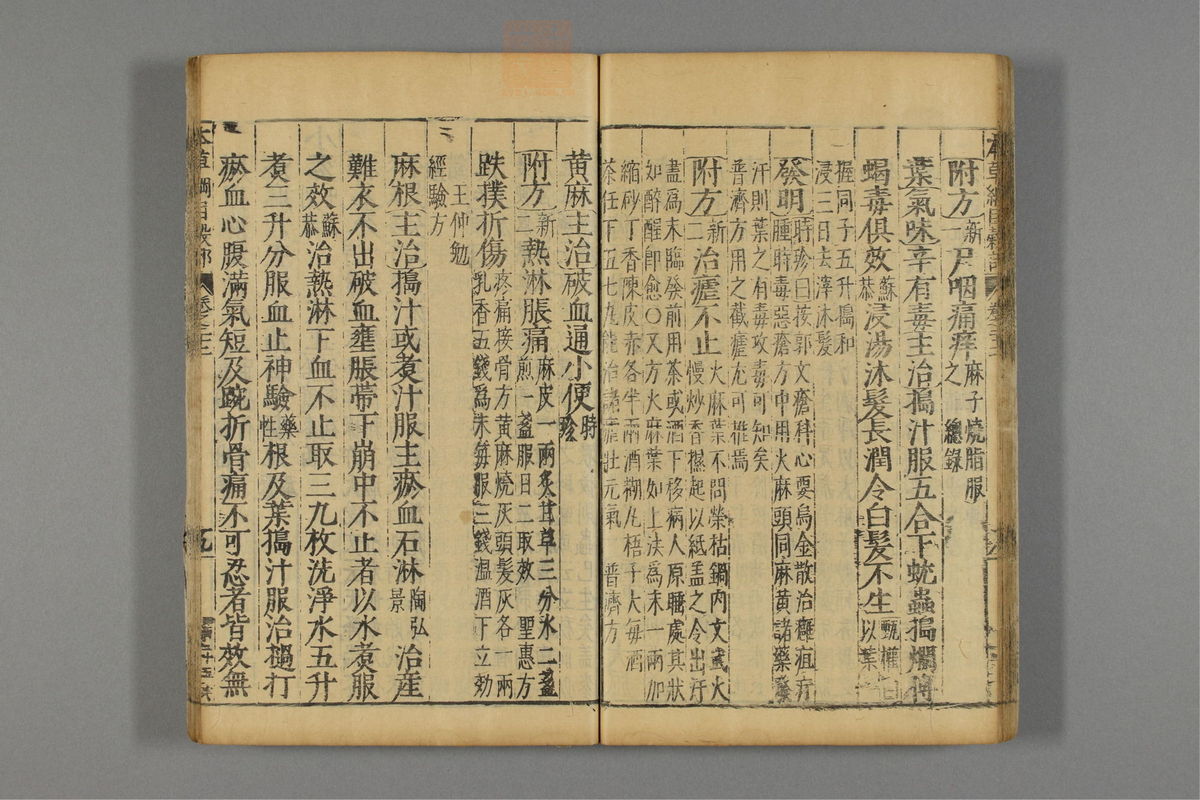 附方新一尸咽痛痒麻子燒脂服之總錄
葉氣味辛有毒主治搗汁服五合下蚘蟲搗爛傅
蝎毒俱效蘇恭浸湯沐髮長潤令白髮不生甄權曰以葉一
握同子五升搗和浸三日去滓沐髮
發明時珍曰按郭文瘡科心要烏金散治癰疽疔
腫時毒惡瘡方中用火麻頭同麻黃諸藥發
汗則葉之有毒攻毒可知矣
普濟方用之截瘧尤可推焉
附方新二治瘧不止火麻葉不問榮枯鍋內文武火
慢炒香撧起以紙盖之令出汗
盡爲末臨發前用茶或酒下移病人原睡處其狀
如醉醒即愈〇又方火麻葉如上法爲末一兩加
縮砂丁香陳皮木香各半兩酒糊丸梧子大每酒
茶任下五七丸能治諸瘧壯元氣 普濟方
黃麻主治破血通小便時珍
附方新二熱淋脹痛麻皮一兩炙甘草三分水二盞
煎一盞服日二取效 聖惠方
跌撲折傷疼痛接骨方黃麻燒灰頭髮灰各一兩
乳香五錢爲末每服三錢溫酒下立効
王仲勉
經驗方
麻根主治搗汁或煮汁服主瘀血石淋陶弘景治產
難衣不出破血壅脹帶下崩中不止者以水煮服
之效蘇恭治熱淋下血不止取三九枚洗淨水五升
煮三升分服血止神驗藥性根及葉搗汁服治撾打
瘀血心腹滿氣短及踠折骨痛不可忍者皆效無
本草綱目穀部
卷之二十二